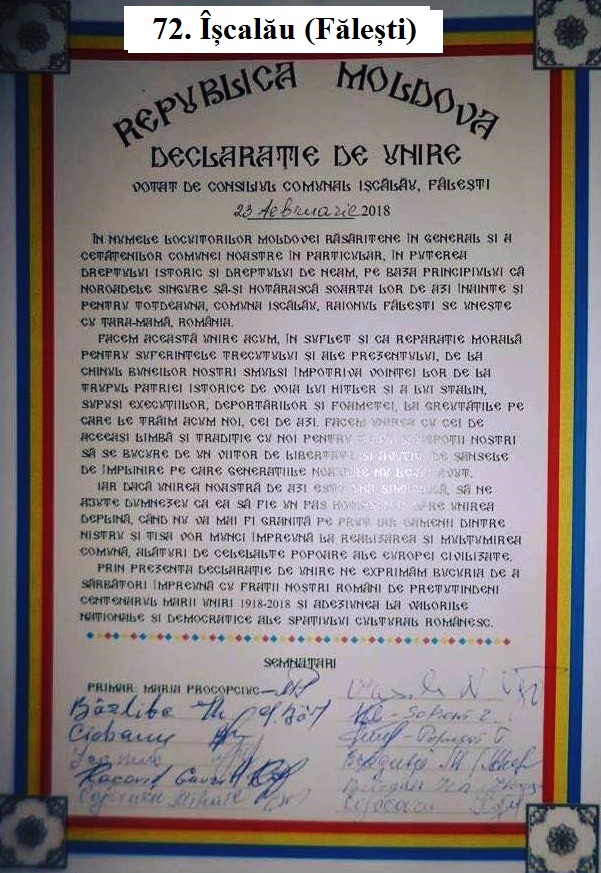 72. Îșcalău (Fălești)
REPUBLICA MOLDOVA
DECLARAȚIE DE UNIRE
VOTAT DE CONSILIUL COMUNAL IȘCĂLĂU, FĂLEȘTI
23 februarie 2018
ÎN NUMELE LOCUITORILOR MOLDOVEI RĂSĂRITENE ÎN GENERAL ȘI A
CETĂȚENILOR COMUNEI NOASTRE ÎN PARTICULAR, ÎN PUTEREA
DREPTULUI ISTORIC ȘI DREPTULUI DE NEAM, PE BAZA PRINCIPIULUI CĂ
NOROADELE SINGURE SĂ-ȘI HOTĂRASCĂ SOARTA LOR DE AZI ÎNAINTE ȘI
PENTRU TOTDEAUNA, COMUNA IȘCĂLĂU, RAIONUL FĂLEȘTI SE UNEȘTE
CU ȚARA-MAMĂ, ROMÂNIA.
FACEM ACEASTĂ UNIRE ACUM, ÎN SUFLET ȘI CA REPARAȚIE MORALĂ
PENTRU SUFERINȚELE TRECUTULUI ȘI ALE PREZENTULUI, DE LA
CHINUL BUNEILOR NOȘTRI SMULȘI ÎMPOTRIVA VOINȚEI LOR DE LA
TRUPUL PATRIEI ISTORICE DE VOIA LUI HITLER ȘI A LUI STALIN,
SUPUȘI EXECUȚIILOR, DEPORTĂRILOR ȘI FOAMETEI, LA GREUTĂȚILE PE
CARE LE TRĂIM ACUM NOI, CEI DE AZI. FACEM UNIREA CU CEI DE
ACEEAȘI LIMBĂ ȘI TRADIȚIE CU NOI PENTRU NEPOȚII NOȘTRI
SĂ SE BUCURE DE UN VIITOR DE LIBERTATE ȘI DE ȘANSELE
DE ÎMPLINIRE PE CARE GENERAȚIILE NOASTRE NU LE-AU AVUT.
IAR DACĂ UNIREA NOASTRĂ DE AZI ESTE UNA SIMBOLICĂ, SĂ NE
AJUTE DUMNEZEU CA EA SĂ FIE UN PAS SPRE UNIREA
DEPLINĂ, CÂND NU VA MAI FI GRANIȚĂ PE PRUT IAR OAMENII DINTRE
NISTRU ȘI TISA VOR MUNCI ÎMPREUNĂ LA REALIZAREA ȘI MULȚUMIREA
COMUNĂ, ALĂTURI DE CELELALTE POPOARE ALE EUROPEI CIVILIZATE.
PRIN PREZENTA DECLARAȚIE DE UNIRE NE EXPRIMĂM BUCURIA DE A
SĂRBĂTORI ÎMPREUNĂ CU FRAȚII NOȘTRI ROMÂNI DE PRETUTINDENI
CENTENARUL MARII UNIRI 1918-2018 ȘI ADEZIUNEA LA VALORILE
NAȚIONALE ȘI DEMOCRATICE ALE SPAȚIULUI CULTURAL ROMÂNESC.
SEMNATARI
PRIMAR: MARIA PROCOPCIUC
Ciobanu
Cojocaru Mihail
Cojocaru